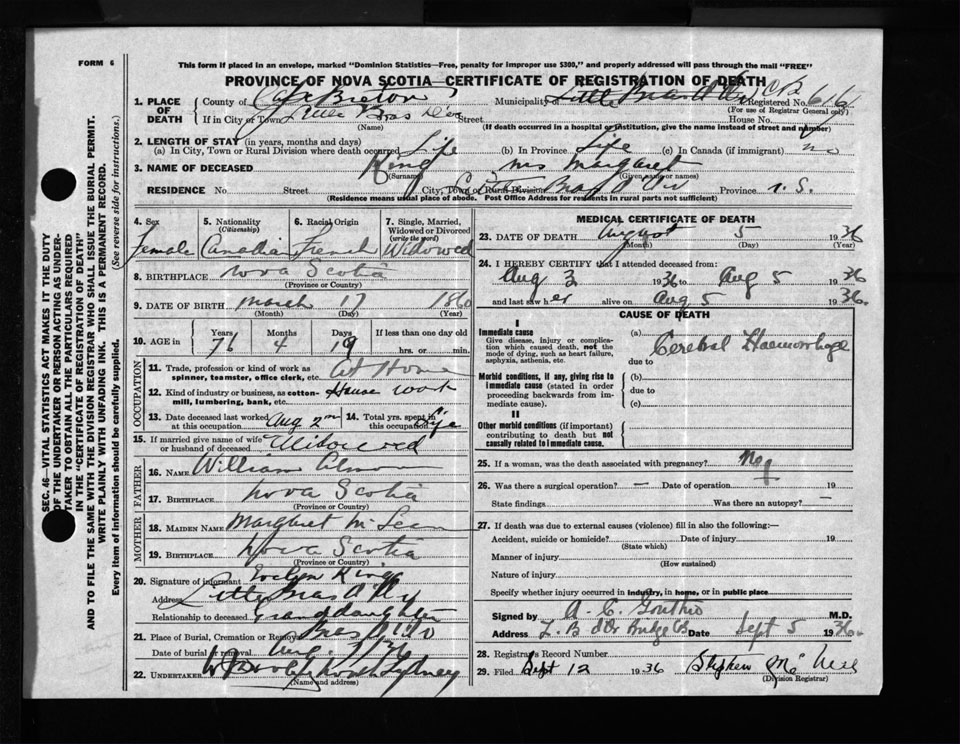 FORM 6
This form if placed in an envelope, marked "Dominion Statistics—Free, penalty for improper use $300," and properly addressed will pass through the mail "FREE"
PROVINCE OF NOVA SCOTIA—CERTIFICATE OF REGISTRATION OF DEATH
1. PLACE OF DEATH
County of Cape Breton Municipality of Little Bras d'Or C B Registered No. 616
(For use of Registrar General only)
If in City or Town Little Bras d'Or Street House No.
(Name) (If death occurred in a hospital or institution, give the name instead of street and number)
2. LENGTH OF STAY (in years, months and days)
(a) In City, Town or Rural Division where death occurred Life (b) In Province Life (c) In Canada (if immigrant) no
3. NAME OF DECEASED King Mrs Margaret
(Surname) (Given name or names)
RESIDENCE No Street City, Town or Rural Division Bras d'Or Province N. S.
(Residence means usual place of abode. Post Office Address for residents in rural parts not sufficient)
SEC. 46—VITAL STATISTICS ACT MAKES IT THE DUTY
OF THE UNDERTAKER OR PERSON ACTING AS UNDER-
TAKER TO OBTAIN ALL THE PARTICULARS REQUIRED
IN THE "CERTIFICATE OF REGISTRATION OF DEATH"
AND TO FILE THE SAME WITH THE DIVISION REGISTRAR WHO SHALL ISSUE THE BURIAL PERMIT.
WRITE PLAINLY WITH UNFADING INK. THIS IS A PERMANENT RECORD.
Every item of information should be carefully supplied. (See reverse side for instructions.)
4. Sex Female
5. Nationality (Citizenship) Canadian
6. Racial Origin French
7. Single, Married, Widowed or Divorced (write the word) Widowed
8. BIRTHPLACE Nova Scotia
(Province or Country)
9. DATE OF BIRTH March 17 1860
(Month) (Day) (Year)
10. AGE in Years 76 Months 4 Days 19 If less than one day old hrs. or min.
OCCUPATION
11. Trade, profession or kind of work as spinner, teamster, office clerk, etc. At Home
12. Kind of industry or business, as cotton-mill, lumbering, bank, etc. House work
13. Date deceased last worked at this occupation Aug 2nd 14. Total yrs. spent in this occupation Life
15. If married give name of wife or husband of deceased Widowed
FATHER
16. NAME William
17. BIRTHPLACE Nova Scotia
(Province or Country)
MOTHER
18. MAIDEN NAME Margaret
19. BIRTHPLACE Nova Scotia
(Province or Country)
20. Signature of informant Evelyn King
Address Little Bras d'Or
Relationship to deceased Granddaughter
21. Place of Burial, Cremation or Removal Bras d'Or
Date of burial or removal Aug. 7/36
22. UNDERTAKER Sydney
(Name and address)
MEDICAL CERTIFICATE OF DEATH
23. DATE OF DEATH August 5 1936
(Month) (Day) (Year)
24. I HEREBY CERTIFY that I attended deceased from:
Aug 3 1936 to Aug 5 1936
and last saw her alive on Aug 5 1936.
CAUSE OF DEATH
I
Immediate cause
Give disease, injury or complication which caused death, not the mode of dying, such as heart failure, asphyxia, asthenia, etc.
(a) Cerebral Haemorrhage
due to
Morbid conditions, if any, giving rise to immediate cause (stated in order proceeding backwards from immediate cause).
(b)
due to
(c)
II
Other morbid conditions (if important) contributing to death but not causally related to immediate cause.
25. If a woman, was the death associated with pregnancy? No
26. Was there a surgical operation? — Date of operation 19
State findings Was there an autopsy? —
27. If death was due to external causes (violence) fill in also the following:—
Accident, suicide or homicide? Date of injury 19
(State which)
Manner of injury
(How sustained)
Nature of injury
Specify whether injury occurred in industry, in home, or in public place
Signed by A. C. M.D.
Address Date Sept 5 1936.
28. Registrars Record Number
29. Filed Sept 12 1936 Stephen
(Division Registrar)